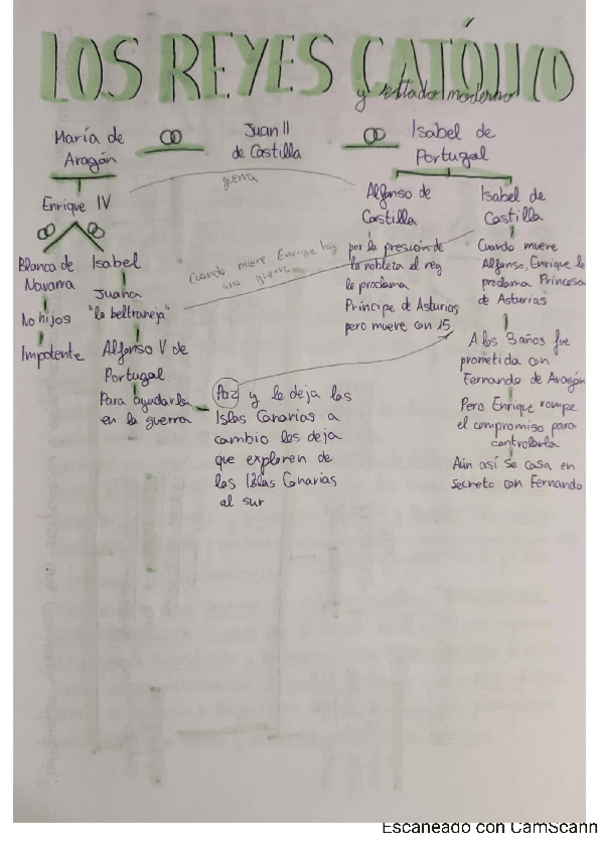 LOS REYES CATÓLICO
y estado moderno
María de
Aragón
Juan II
de Castilla
Isabel de
Portugal
guerra
Enrique IV
Alfonso de
Castilla
Isabel de
Castilla
Blanca de
Navarra
No hijos
Impotente
Isabel
Juana
"la beltraneja"
Alfonso V de
Portugal
Para ayudarla
en la guerra
Cuando muere Enrique hay
una guerra
Paz y le deja las
Islas Canarias a
cambio les deja
que exploren de
las Islas Canarias
al sur
por la presión de
la nobleza el rey
le proclama
Príncipe de Asturias
pero muere con 15
Cuando muere
Alfonso, Enrique le
proclama Princesa
de Asturias
A los 3 años fue
prometida con
Fernando de Aragón
Pero Enrique rompe
el compromiso para
controlarla
Aún así se casa en
secreto con Fernando
Escaneado con CamScann